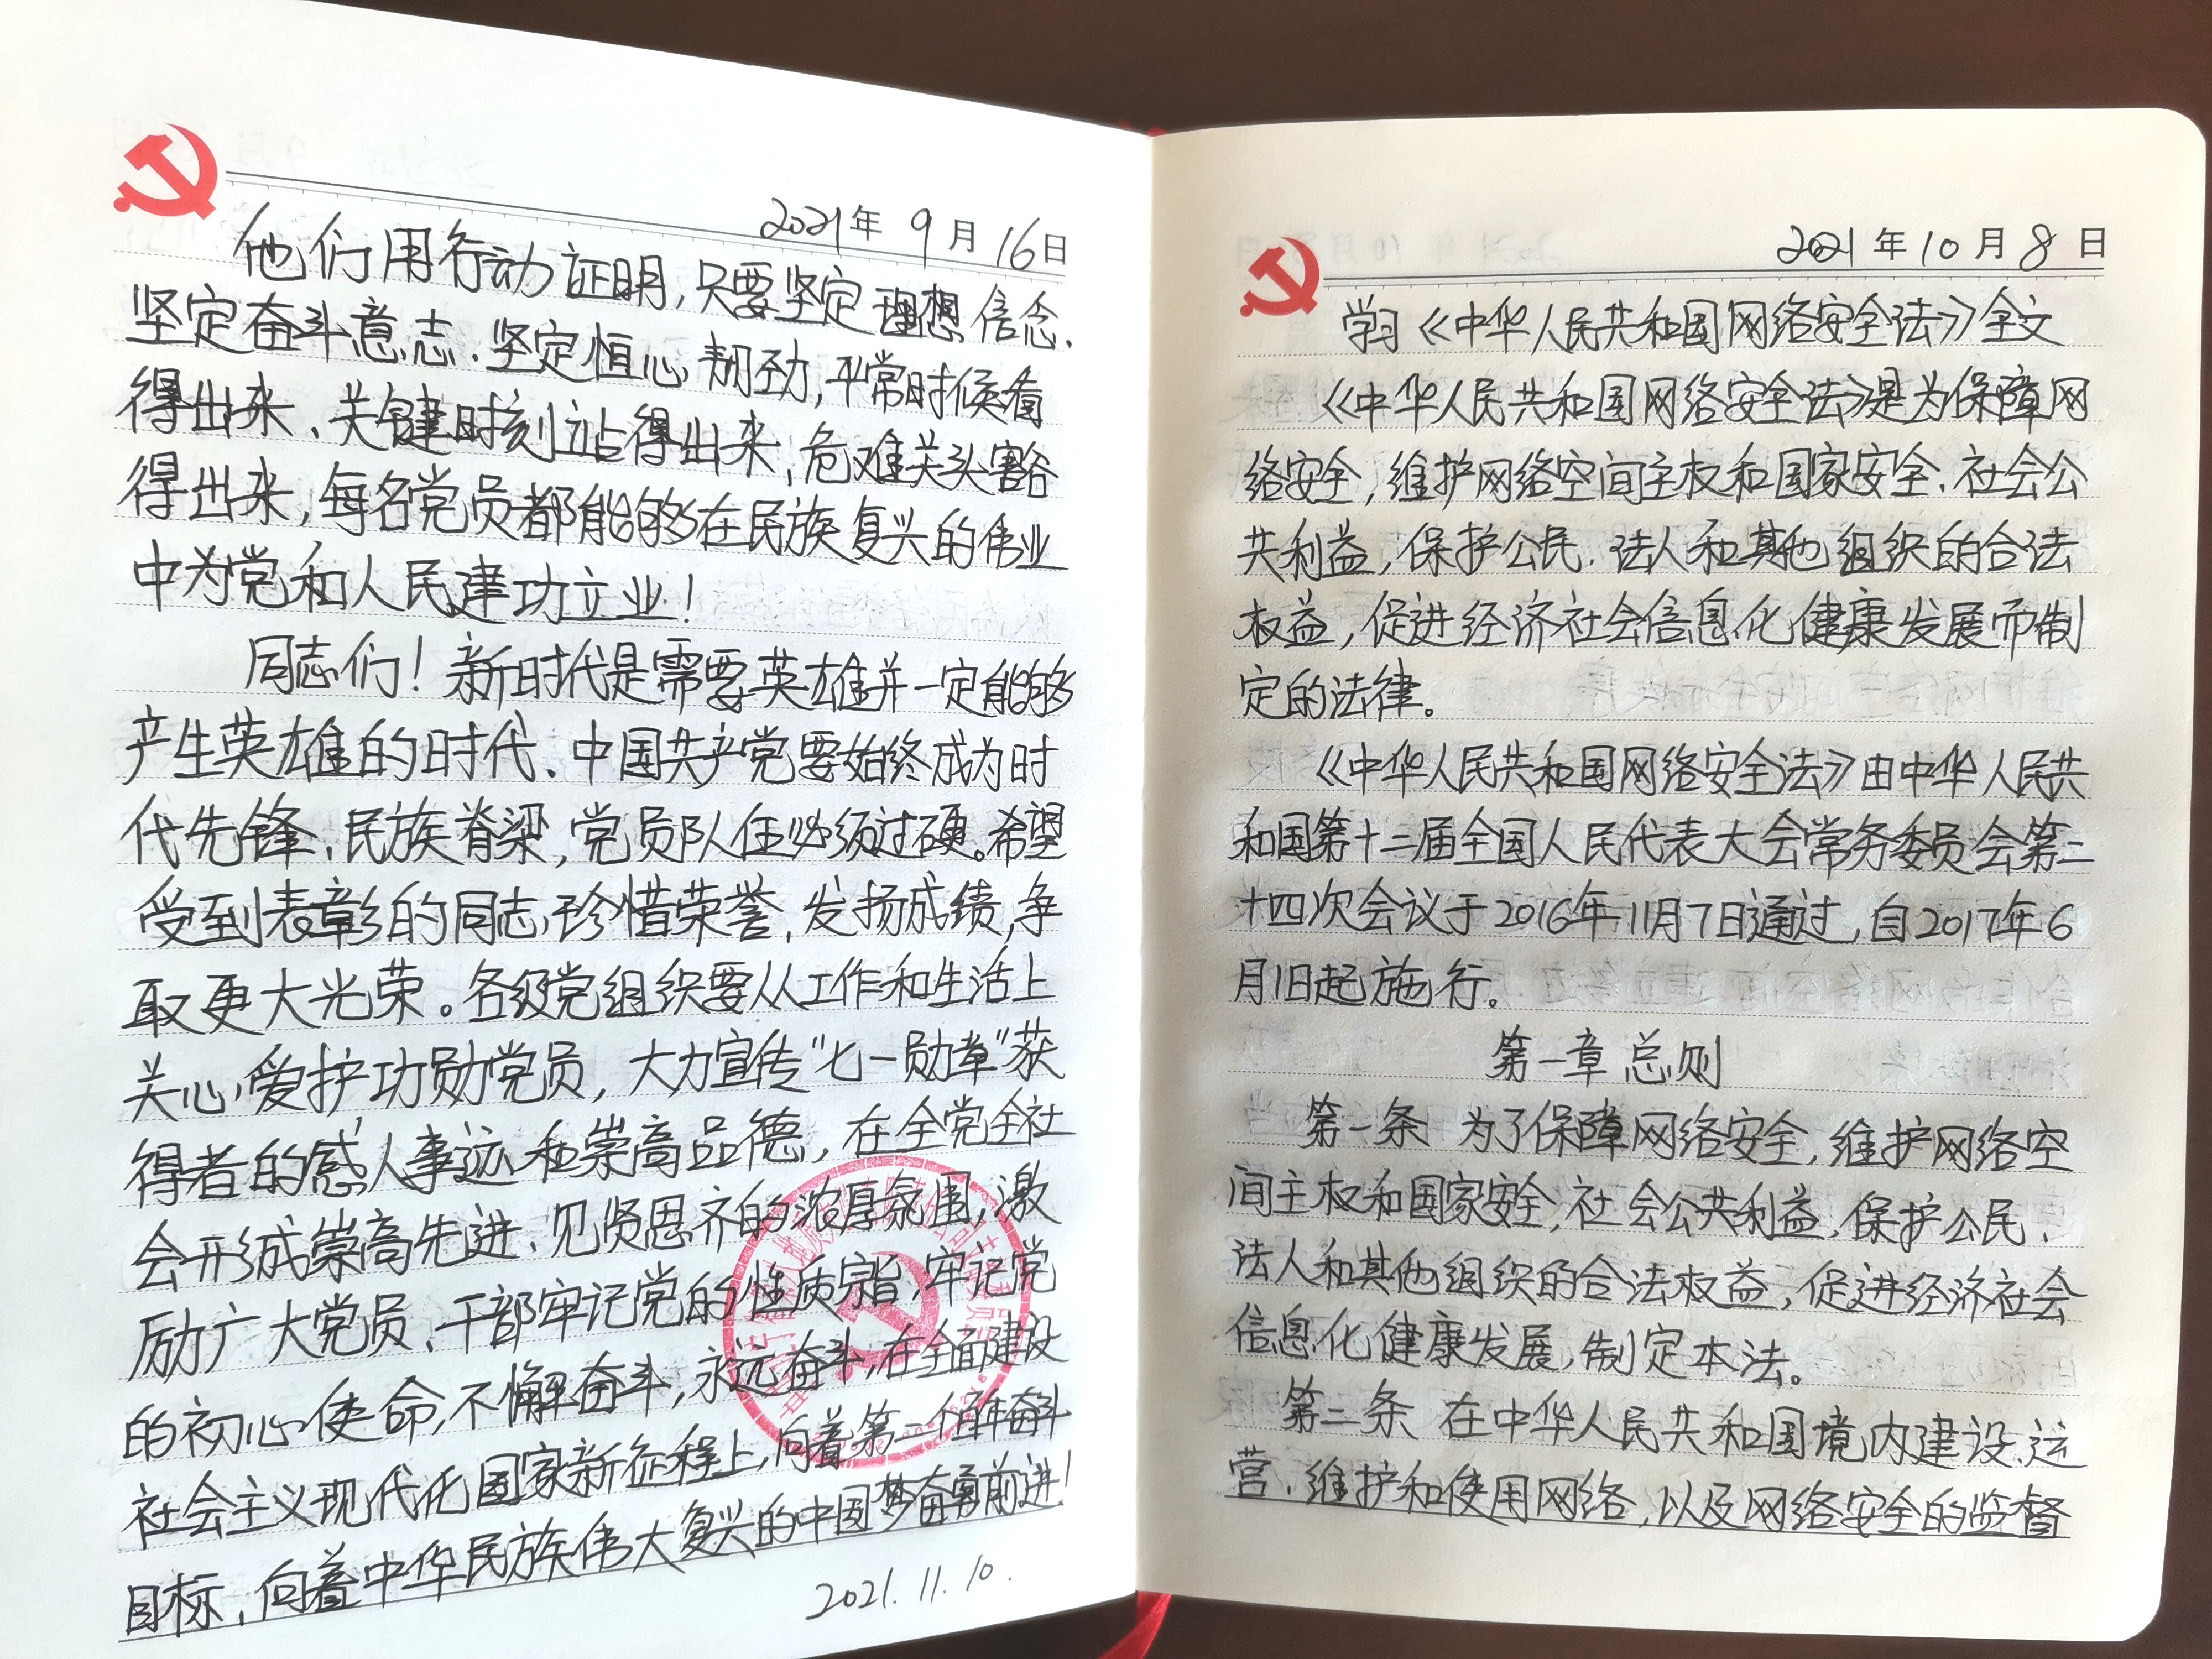 2021年 9月 16日
他们用行动证明,只要坚定理想信念、
坚定奋斗意志、坚定恒心韧劲,平常时候看
得出来、关键时刻站得出来,危难关头豁
得出来,每名党员都能够在民族复兴的伟业
中为党和人民建功立业!
同志们!新时代是需要英雄并一定能够
产生英雄的时代、中国共产党要始终成为时
代先锋、民族脊梁,党员队伍必须过硬。希望
受到表彰的同志,珍惜荣誉,发扬成绩,争
取更大光荣。各级党组织要从工作和生活上
关心,爱护功勋党员,大力宣传“七一勋章”获
得者的感人事迹和崇高品德,在全党全社
会形成崇高先进、见贤思齐的浓厚氛围,激
励广大党员、干部牢记党的性质宗旨,牢记党
的初心使命,不懈奋斗,永远奋斗,在全面建设
社会主义现代化国家新征程上,向着第二个百年奋斗
目标,向着中华民族伟大复兴的中国梦奋勇前进!
2021.11.10.
2021年10月8日
学习《中华人民共和国网络安全法》全文
《中华人民共和国网络安全法》是为保障网
络安全,维护网络空间主权和国家安全、社会公
共利益,保护公民、法人和其他组织的合法
权益,促进经济社会信息化健康发展而制
定的法律。
《中华人民共和国网络安全法》由中华人民共
和国第十二届全国人民代表大会常务委员会第二
十四次会议于2016年11月7日通过,自2017年6
月1日起施行。
第一章 总则
第一条 为了保障网络安全,维护网络空
间主权和国家安全,社会公共利益,保护公民、
法人和其他组织的合法权益,促进经济社会
信息化健康发展,制定本法。
第二条 在中华人民共和国境内建设、运
营、维护和使用网络,以及网络安全的监督